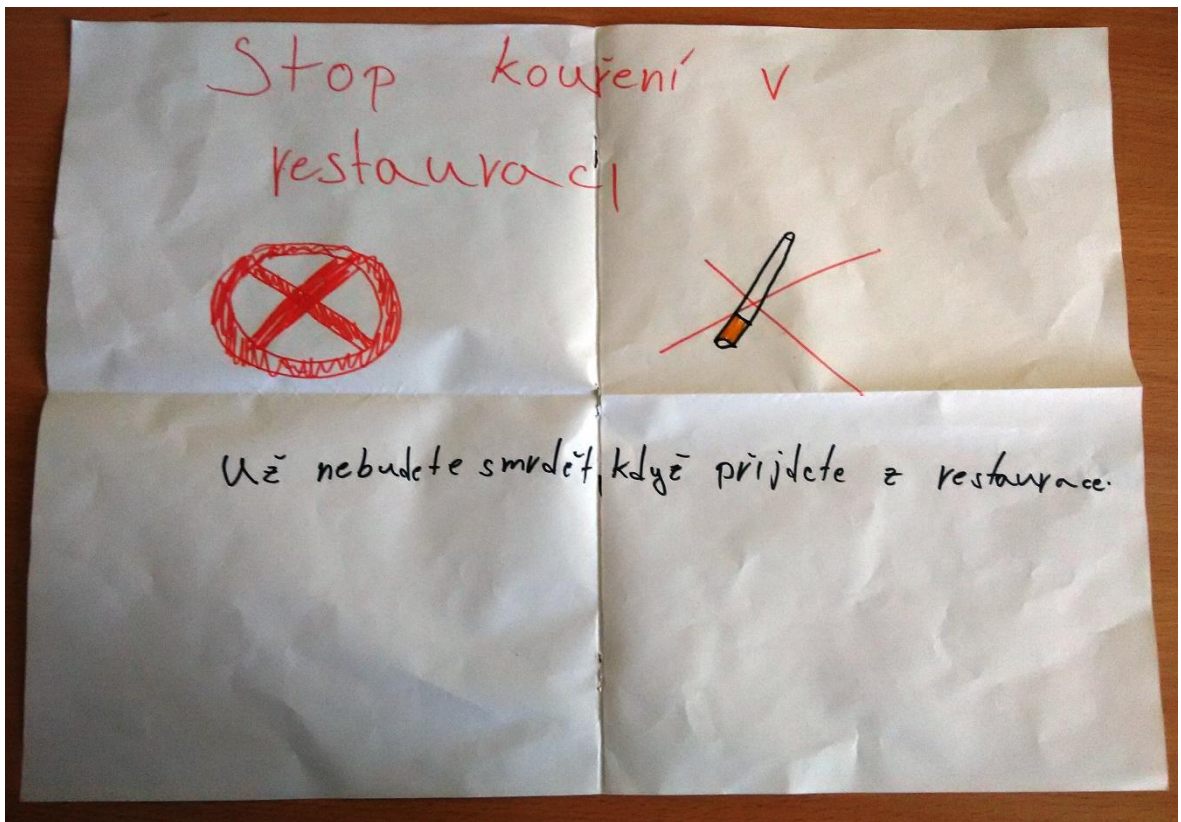 Stop kouření v
restauraci
Už nebudete smrdět, když přijdete z restaurace.